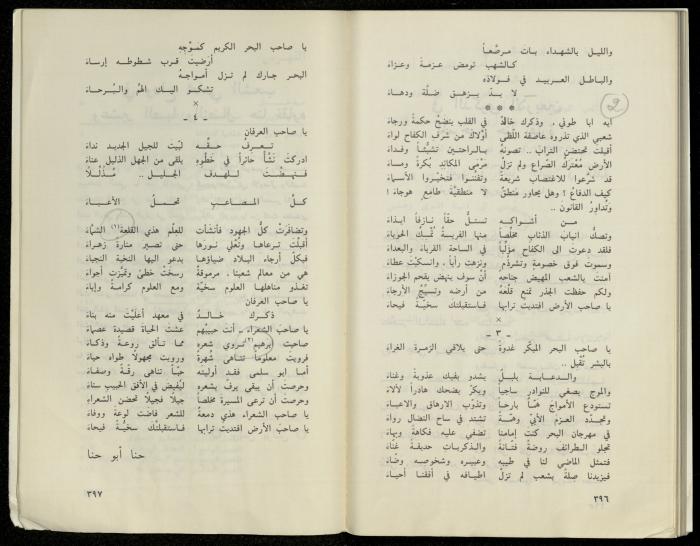 والليل بالشهداء بات مرصّعاً
كالشهب تومض عزمة وعزاء
والباطل العربيد في فولاذه
لا بدّ يزهق ضلّة ودهاء
* * *
2
ايه ابا طوني، وذكرك خالدٌ في القلب ينضح حكمة ورجاء
شعبي الذي تذروه عاصفة اللّظى أولاك من شرف الكفاح لواء
أقبلت تحتضن التراب .. تصونه بالراحتين تشبّثاً وفداء
الأرض معْتركُ الصّراع ولم تزلْ مرْمى المكائد بُكرة ومساء
قد شرّعوا للاغتصاب شريعةً وتفنّنوا فتخيّروا الأسماء
كيف الدفاعُ ! وهل يحاور منطقٌ لا منطقيّة طامع هوجاء !
وتُداور القانون ..
من أشواكه تستلّ حقّاً نازفاً ايذاء
وتصكّ انياب الذئاب مخلّصاً منها الفريسة تُمسك الحوباء
فلقد دعوت الى الكفاح مؤلّباً في الساحة القرباء والبعداء
وسموت فوق خصومة وتشرذُم ونزهت رأياً، وانسكبْت عطاء
آمنت بالشعب المهيض جناحه أنْ سوف ينهض يقحم الجوزاء
ولكم حفظت الجذر تمنع قلْعهُ من أرضه وتسيّجُ الأرجاء
يا صاحب الأرض افتديت ترابها فـاستقبلتك سخيّة فيحاء
×
- ٣ -
يا صاحب البحر المبكّر غدوةً حتى يلاقي الزمرة الغراء
بالبشر تُقْبل ..
والدعابة بلبلٌ يشدو بفيك عذوبة وغناء
والموج يصغي للنوادر ساجياً ويكرّ يضحك هادراً لألاء
تستودع الأمواج همّاً بارحاً وتذوّب الارهاق والاعياء
وتجدّد العزمَ الأبيّ وهمّةً تشتد في ساح النضال رواء
في مهرجان البحر كنت إمامنا تضفي عليه فكاهة وبهاء
تجلو الطرائف روضةً فتّانةً والذكريات حديقة غنّاء
فتمثل الماضي لنا في طيبه وعبيره وشخوصه وضّاء
فيزيدنا صلةً بشعب لم تزلْ اطيافه في أفقنا أحياء
٣٩٦
يا صاحب البحر الكريم كموْجه
أرضيت قرب شطوطه إرساء
البحر جارك لم تزل أمواجهُ
تشكو اليك الهمّ والبُرحاء
×
- ٤ -
يا صاحب العرفان
تعرفُ حقّه لبّيت للجيل الجديد نداء
ادركتَ نشْأً حائراً في خطْوه يلقى من الجهل الذليل عناء
فنهضْت للهدف الجليل .. مُذلّلاً
كلّ المصاعب تحمل الأعباء
وتضافرتْ كلُّ الجهود فأنشأت للعِلْم هذي القلعة(١) الشمّاء
أقبلْت ترعاها وتُعلي نورها حتى تصير منارةً زهراء
فبكلّ أرجاء البلاد ضياؤها يدعو اليها النخبة النجباء
هي من معالم شعبنا، مرموقةٌ رسخَتْ خطىً وتميّزت أجواء
تغذو مناهلها العلوم سخيّة ومع العلوم كرامةً وإباء
يا صاحب العرفان
ذكرك خالدٌ في معهد أعليْت منه بناء
يا صاحب الشعراء .. أنت حبيبُهم عشْت الحياة قصيدة عصماء
صاحبت إبرهيم(٢) تروي شعره مما تألق روعةً وذكاء
فرويت معلوماً تناهى شُهرةً ورويت مجهولاً طواه حياء
أما ابو سلمى فقد أوليته حبّاً تناهى رقّةً وصفاء
وحرصت أن يبقى يرفّ بشعره ليُفيض في الأفق الحبيب سناء
وحرصت أن ترعى المسيرة مخلصاً جيلاً فجيلاً تحضن الشعراء
يا صاحب الشعراء هذي دمعةٌ للشعر فاضت لوعةً ووفاء
يا صاحبَ الأرض افتديت ترابها فـاستقبلتك سخيّة فيحاء
حنا أبو حنا
٣٩٧